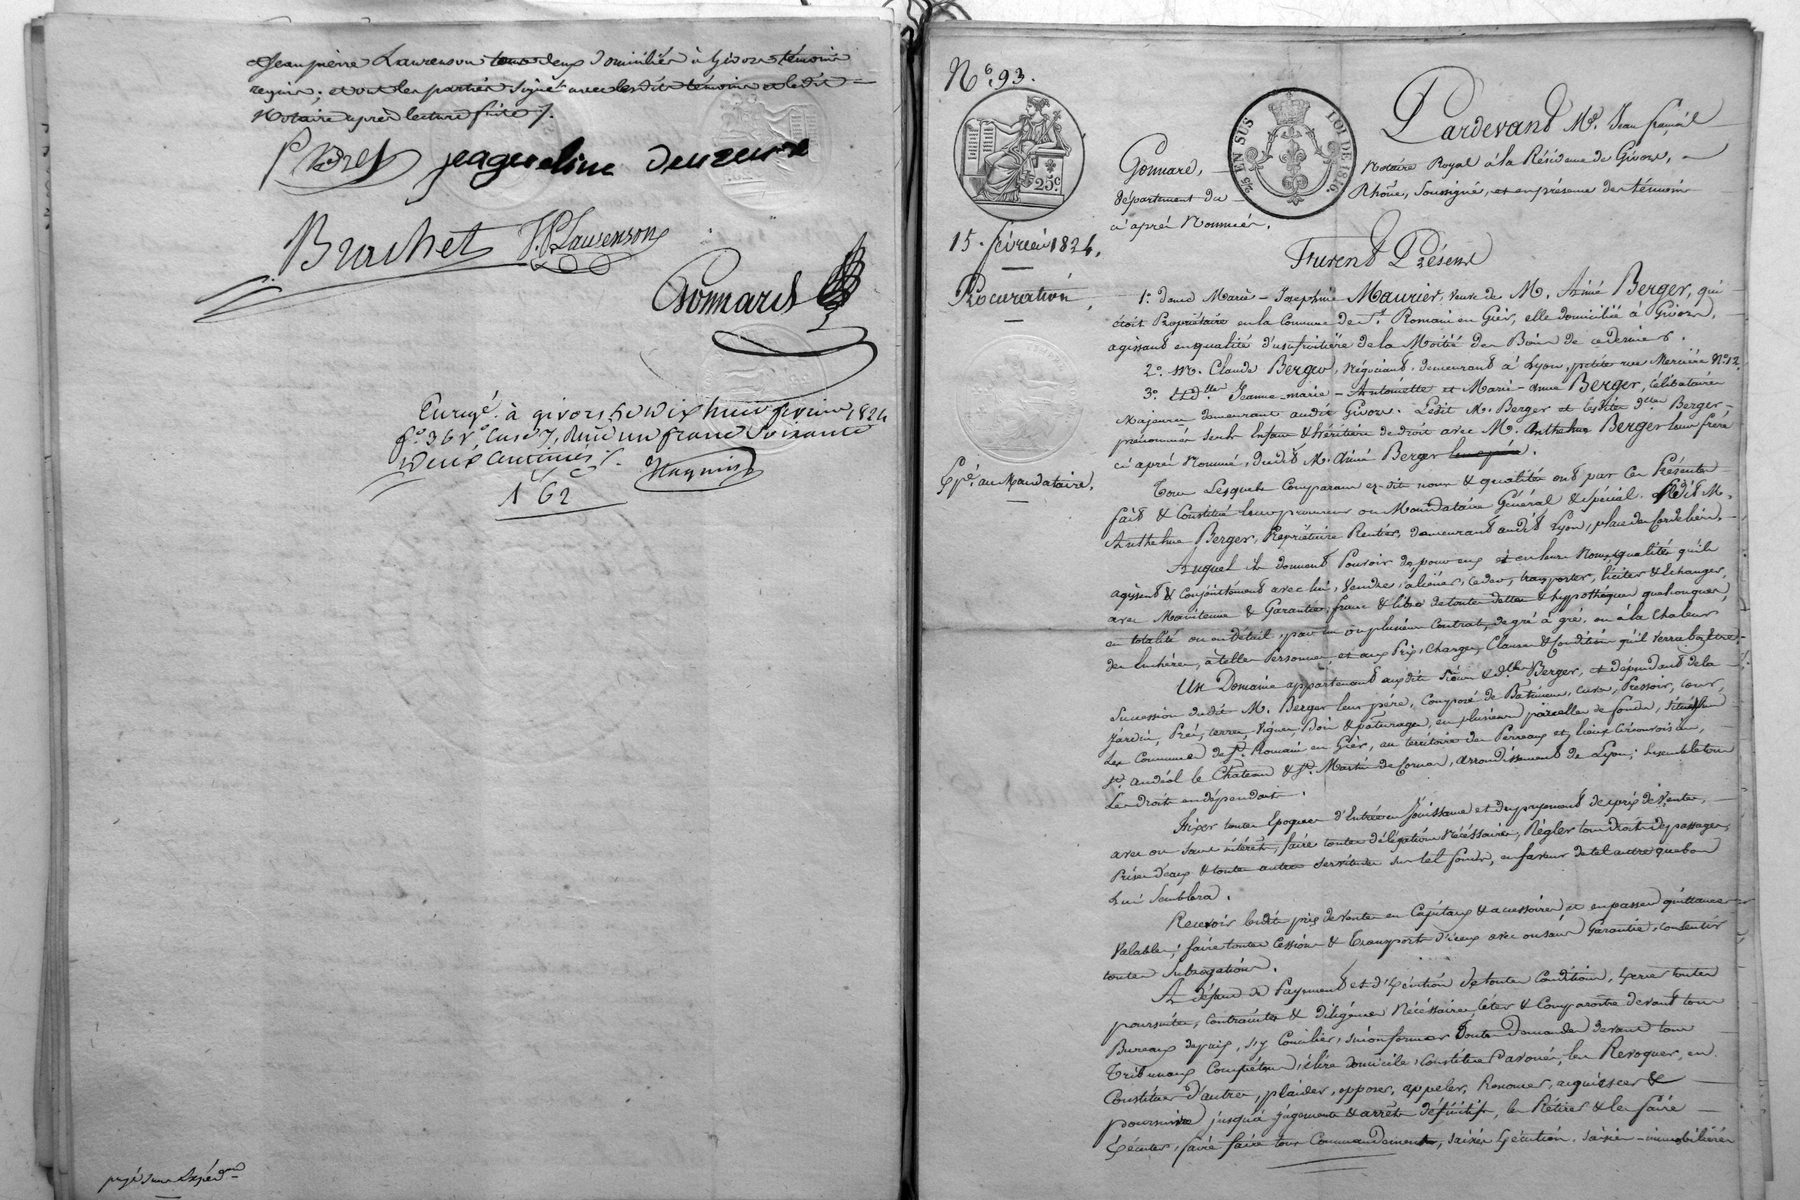 Jean pierre Laurenson tous deux domiciliés à Givors témoins
requis; et ont les parties signé avec lesdits témoins et ledit
Notaire après lecture faite /.
jaqueline
Brachet J. P. Laurenson
Gonnard
Enregé. à givors le dix huit fevrier 1824
fo. 36 Vo. Case 7, Reçu un franc soixante
deux centimes /.
1 62
No. 93.
25 c
25 EN SUS
LOI DE 1816.
15. février 1824.
Procuration.
Epé. au Mandataire.
Pardevant Me. Jean françois
Gonnard, Notaire Royal à la Résidence de Givors,
département du Rhône, soussigné, et en présence des témoins
ci après Nommés.
Furent Présens
1o. dame Marie-Josephine Maurier, veuve de M. Aimé Berger, qui
étoit Propriétaire en la Commune de St. Romain en Gier, elle domiciliée à Givors,
agissant en qualité d'usufruitière de la Moitié des Biens de ce dernier.
2o. Mr. Claude Berger, Négociant demeurant à Lyon, petite rue Mercière No. 12.
3o. Jeanne-marie-Antoinette et Marie-Anne Berger, Célibataires
Majeures demeurant audit Givors. Ledit M. Berger et lesdites dlles Berger
prénommés seuls Enfans & héritiers de droit avec M. Anthelme Berger leur frère
ci après Nommé, dudit M. Aimé Berger leur père.
Tous Lesquels Comparans ez-dits noms & qualités ont par ces Présentes
fait & Constitué leur procureur ou Mandataire Général & spécial. Ledit M.
Anthelme Berger, Propriétaire Rentier, demeurant audit Lyon, place des Cordeliers,
Auquel ils donnent Pouvoir de, pour eux et en leurs Noms, qualités qu'ils
agissent & Conjointement avec lui, Vendre, aliéner, ceder, transporter, liciter & Echanger,
avec Maintenue & Garantie, franc & libre de toutes dettes & hypothèques quelconques,
en totalité ou en détail, par un ou plusieurs Contrats, de gré à gré, ou à la Chaleur
des Enchères, à telles Personnes, et aux Prix, Charges, Clauses & Conditions qu'il verra bon être.
Un Domaine appartenant auxdits Sieurs & Dlles Berger, et dépendant de la
Succession dudit M. Berger leur père, Composé de Bâtimens, cuves, Pressoir, cour,
Jardin, Prés, terres, Vignes, Bois & pâturages, en plusieurs parcelles de fonds, situés sur
Les Communes de St. Romain en Gier, au territoire des Perreaux et lieux Circonvoisins,
St. andéol le Château & St. Martin de Cornas, arrondissement de Lyon; Ensemble tous
Les droits en dépendants.
Fixer toutes Epoques d'Entrée en Jouissance et de payement de prix de Ventes,
avec ou sans intérêts, faire toutes délégations Nécéssaires, Régler tous droits de passages,
Prises d'eaux & toutes autres servitudes sur tel fonds, en faveur de tel autre que bon
Lui Semblera.
Recevoir lesdits prix de ventes en Capitaux & accessoires et en passer quittances
Valables; faire toutes Cessions & Transports d'iceux avec ou sans Garantie, consentir
toutes Subrogations.
A défaut de Payement et d'Exécution de toutes Conditions, Exercer toutes
poursuites, contraintes & diligences Nécéssaires, Citer & Comparoître devant tous
Bureaux de paix, s'y Concilier, sinon former toutes Demandes devant tous
Tribunaux Compétens, élire domicile, Constituer avoués, les Revoquer, en
Constituer d'autres, plaider, opposer, appeler, Renoncer, acquiescer &
poursuivre jusqu'à jugements & arrêts définitifs, les Rétirer & les faire
Exécuter, faire faire tous Commandements, saisies Exécution, saisies-immobilières